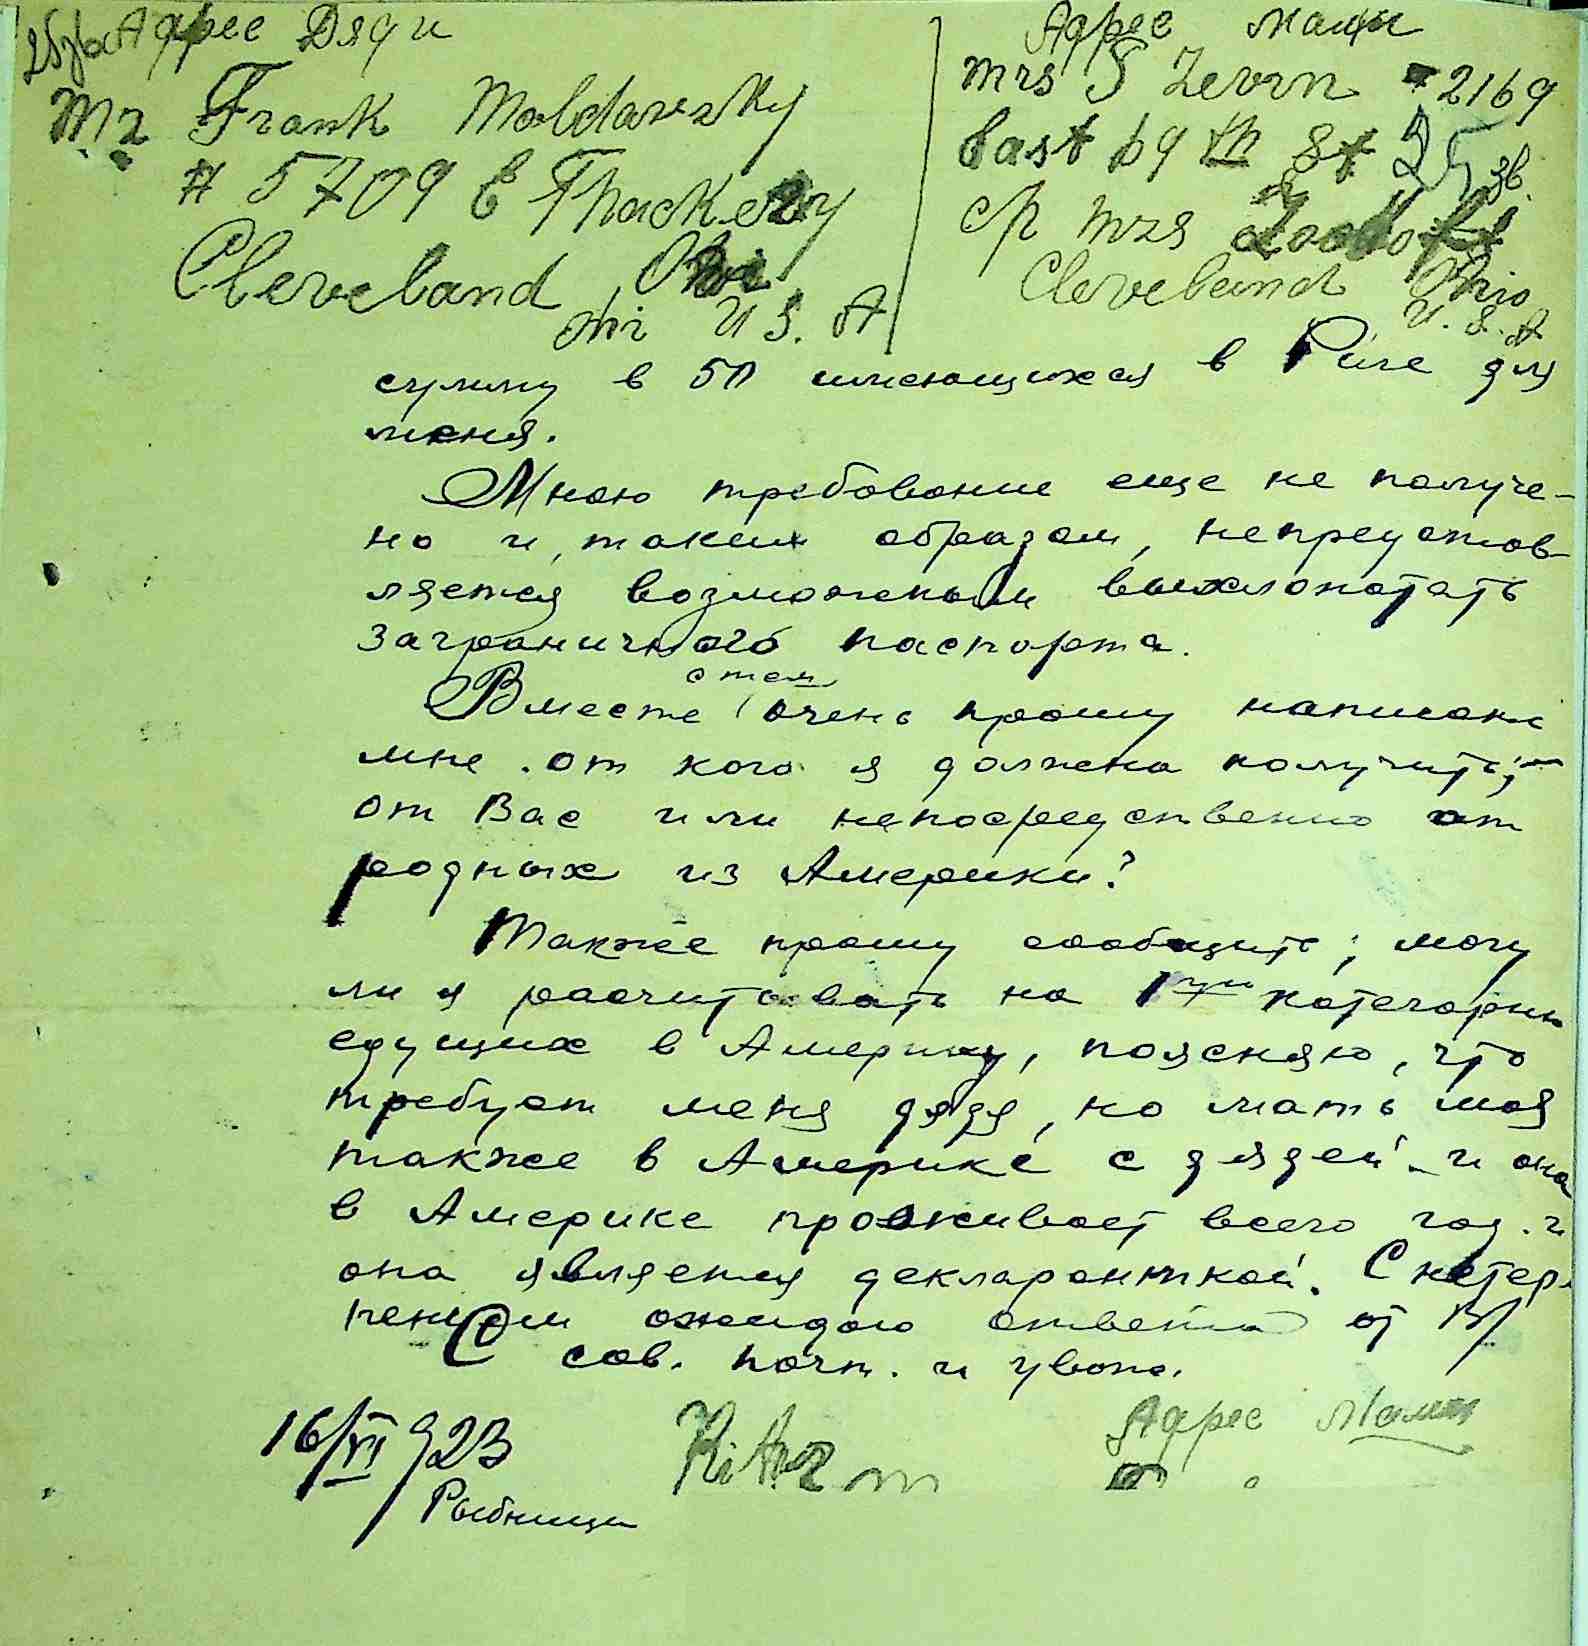 Адрес Дяди
Mr Frank Moldavszky
# 5709 E Thackery
Cleveland
U S. A
Адрес мамы
mrs S Levin 2169
East 69 th St
Mrs
Cleveland Ohio
U. S. A
сумму в 50 имеющихся в Риге для
меня.
Мною требование еще не получе-
но и, таким образом, непредстав-
ляется возможным выхлопотать
заграничного паспорта.
с тем
Вместе очень прошу написать
мне от кого я должна получить;
от Вас или непосредственно от
родных из Америки?
Также прошу сообщить; могу
ли я расчитывать на 1 категорию
едущих в Америку, поясняю, что
требует меня дядя, но мать моя
также в Америке с дядей и она
в Америке проживает всего год. и
она является декларанткой. С нетер-
пением ожидаю ответа от В/
С сов. почт. и уваж.
16/VI 923
Рыбница
Адрес Мамы